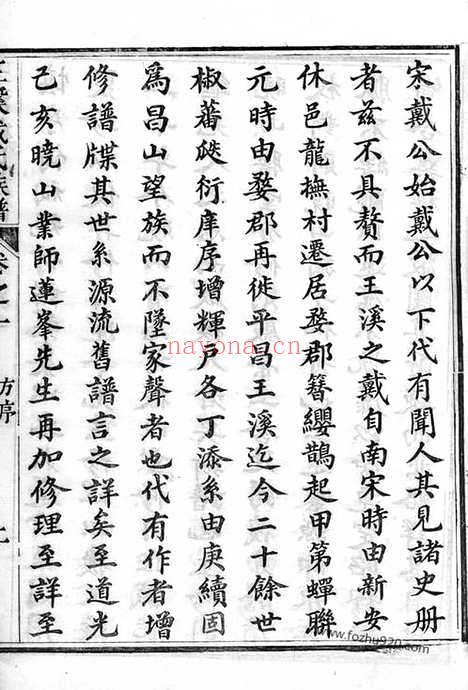 宋戴公始戴公以下代有聞人其見諸史册
者兹不具贅而王溪之戴自南宋時由新安
休邑龍撫村遷居婺郡簪纓鵲起甲第蟬聯
元時由婺郡再徙平昌王溪迄今二十餘世
椒蕃瓞衍庠序增輝戶各丁添系由庚續固
爲昌山望族而不墜家聲者也代有作者增
修譜牒其世系源流舊譜言之詳矣至道光
己亥曉山業師蓮峯先生再加修理至詳至
王溪戴氏族譜
卷之一
方序
nayona.cn
www.fozhu920.com